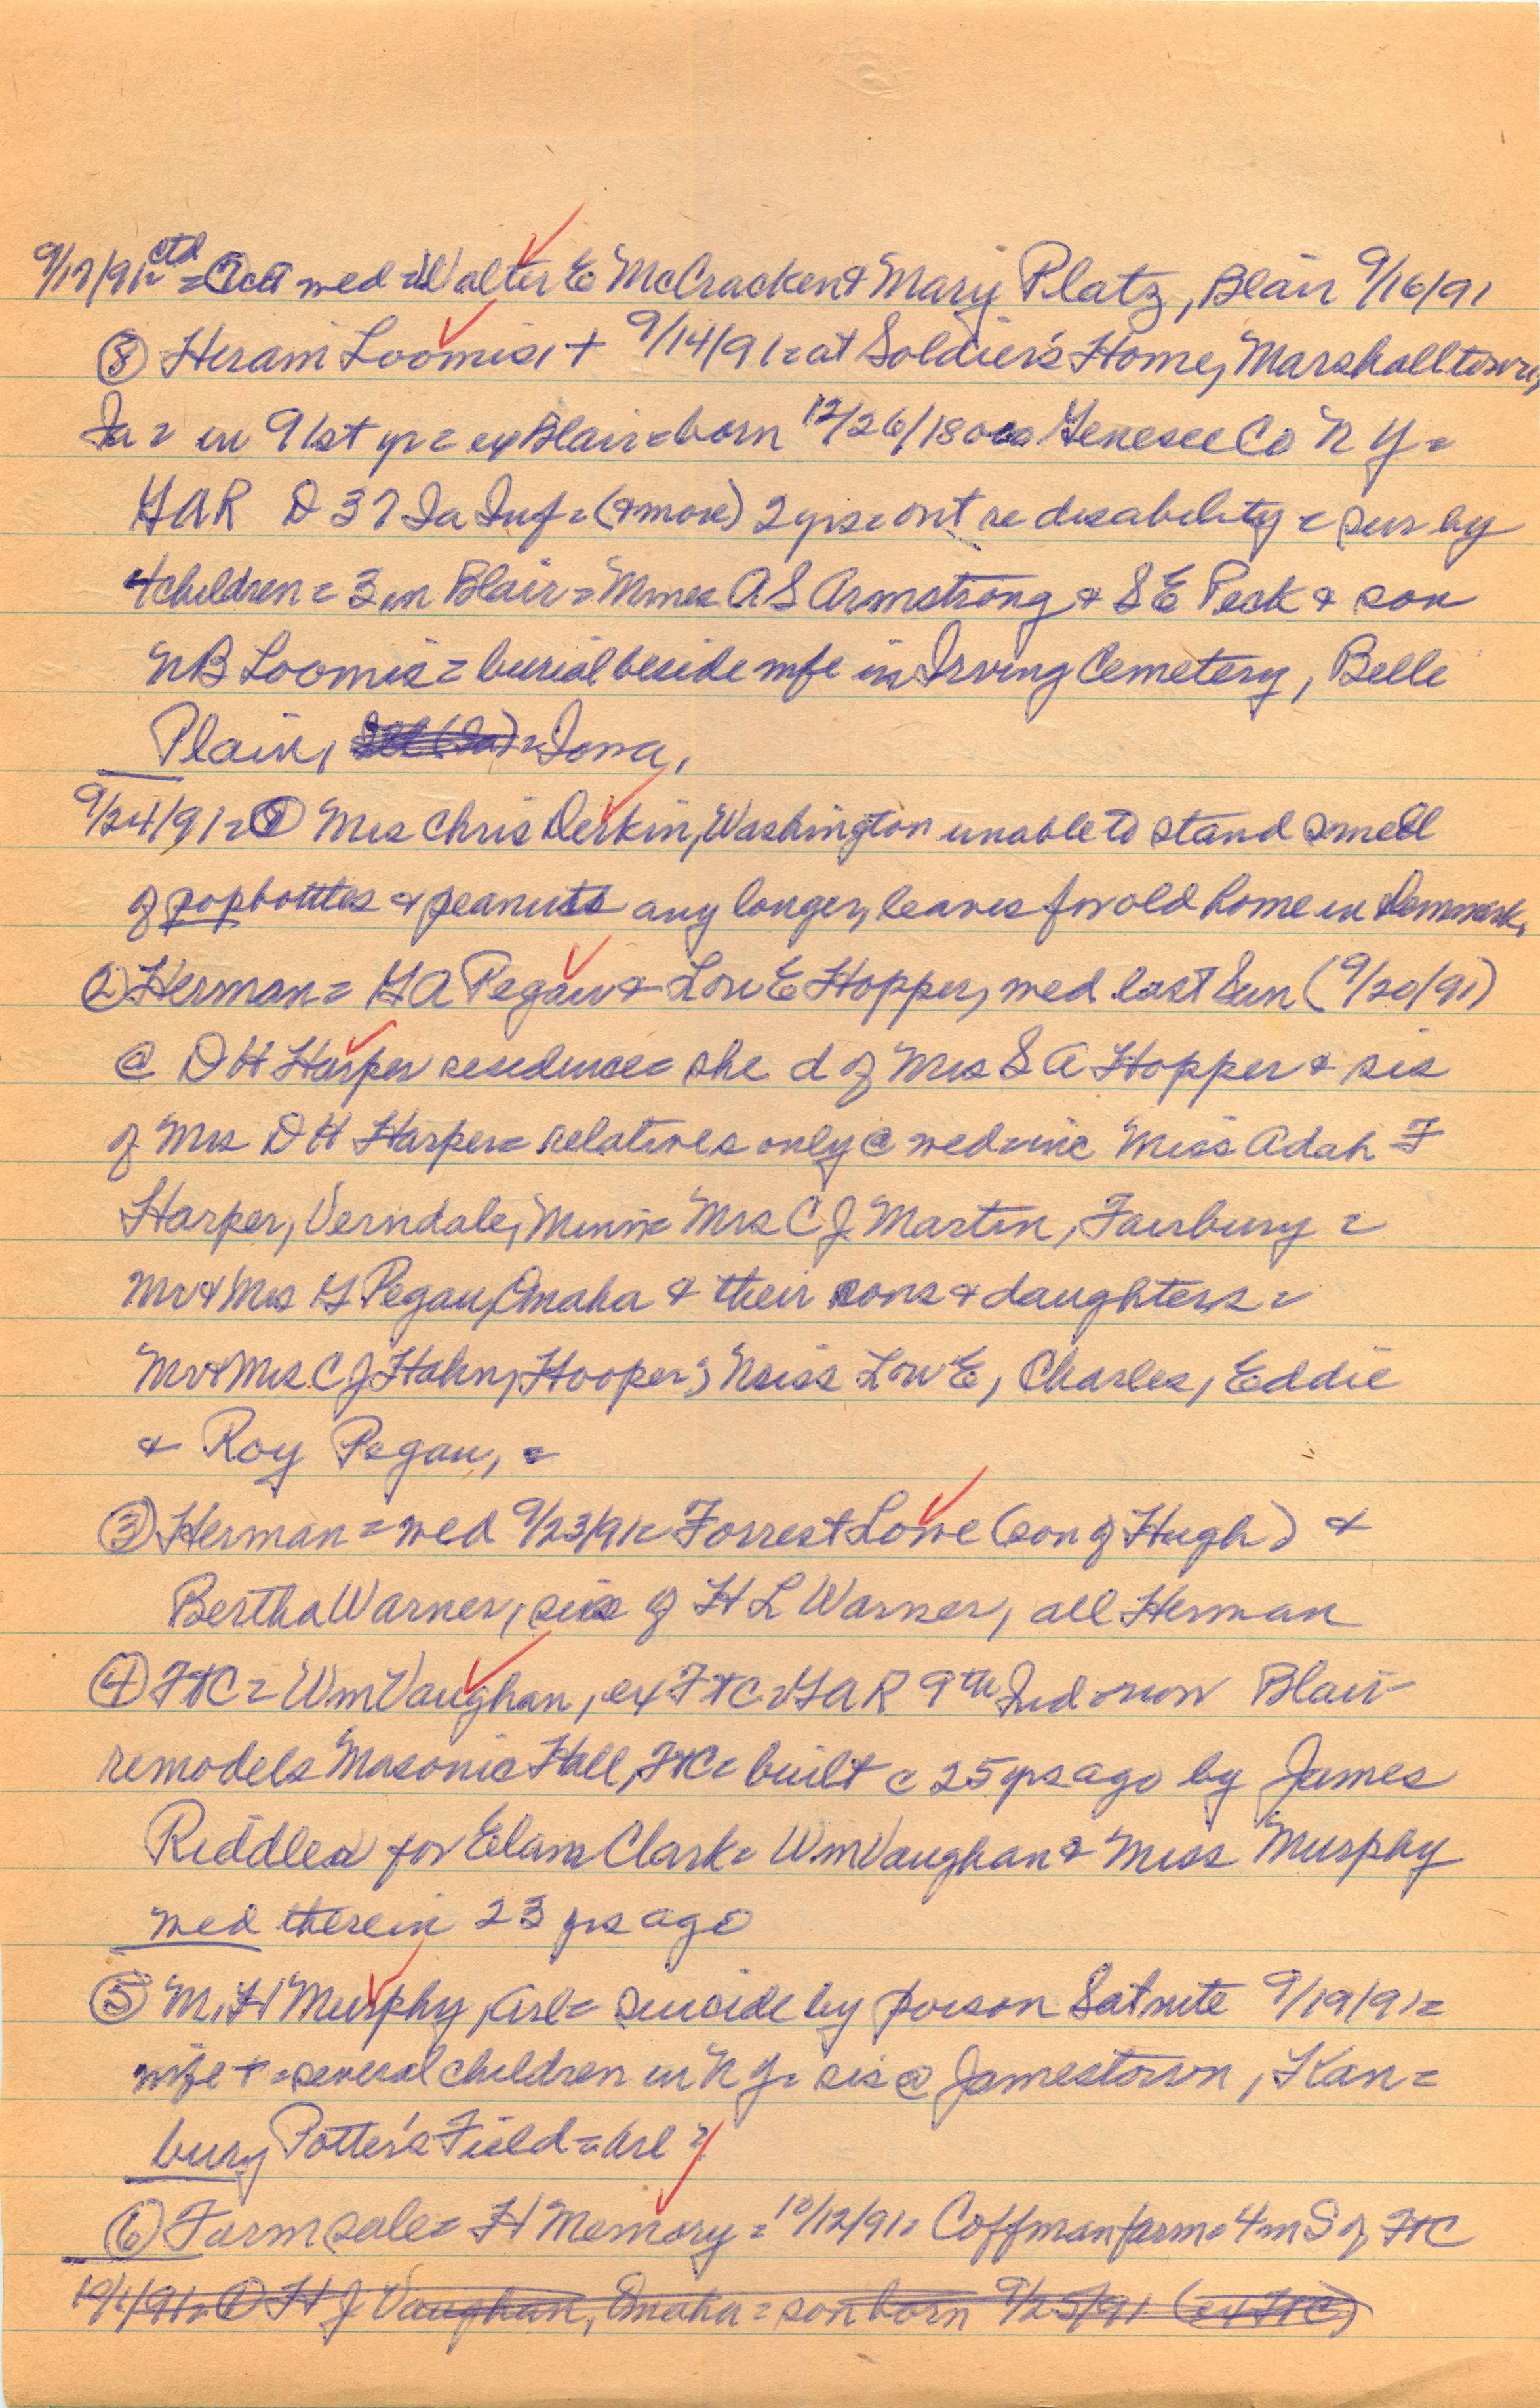 9/17/91 ctd = wed = Walter E McCracken & Mary Platz, Blair 9/16/91
⑧ Hiram Loomis, + 9/14/91 = at Soldier's Home, Marshalltown,
Ia = in 91st yr = ex Blair = born 12/26/1800 = Genesee Co N Y =
GAR D 37 Ia Inf = (& more) 2 yrs = out re disability = sur by
4 children = 3 in Blair = Mmes A S Armstrong & S E Peck & son
N B Loomis = burial beside wife in Irving Cemetery, Belle
Plain, = Iowa,
9/24/91 = ① Mrs Chris Derkin, Washington unable to stand smell
of popbottles & peanuts any longer, leaves for old home in Denmark,
② Herman = G A Pegau & Lou E Hopper, wed last Sun (9/20/91)
@ D H Harper residence = she d of Mrs S A Hopper & sis
of Mrs D H Harper = relatives only @ wed = inc Miss Adah F
Harper, Verndale, Minn = Mrs C J Martin, Fairbury =
Mr & Mrs G Pegau, Omaha & their sons & daughters =
Mr & Mrs C J Hahn, Hooper; Miss Lou E, Charles, Eddie
& Roy Pegau, =
③ Herman = wed 9/23/91 = Forrest Lowe (son of Hugh) &
Bertha Warner, sis of H L Warner, all Herman
④ FtC = Wm Vaughan, ex FtC = GAR 9th Ind = now Blair
remodels Masonic Hall, FtC = built c 25 yrs ago by James
Riddler for Elam Clark = Wm Vaughan & Miss Murphy
wed therein 23 yrs ago
⑤ M. H Murphy, Arl = suicide by poison Sat nite 9/19/91 =
wife + = several children in N Y = sis @ Jamestown, Kan =
bury Potter's Field = Arl =
⑥ Farm sale = H Memory = 10/12/91 = Coffman farm = 4 m S of FtC
10/1/91 = ① H J Vaughan, Omaha = son born 9/25/91 (ex FtC)